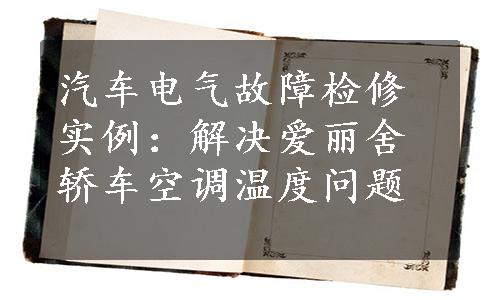 汽车电气故障检修
实例：解决爱丽舍
轿车空调温度问题